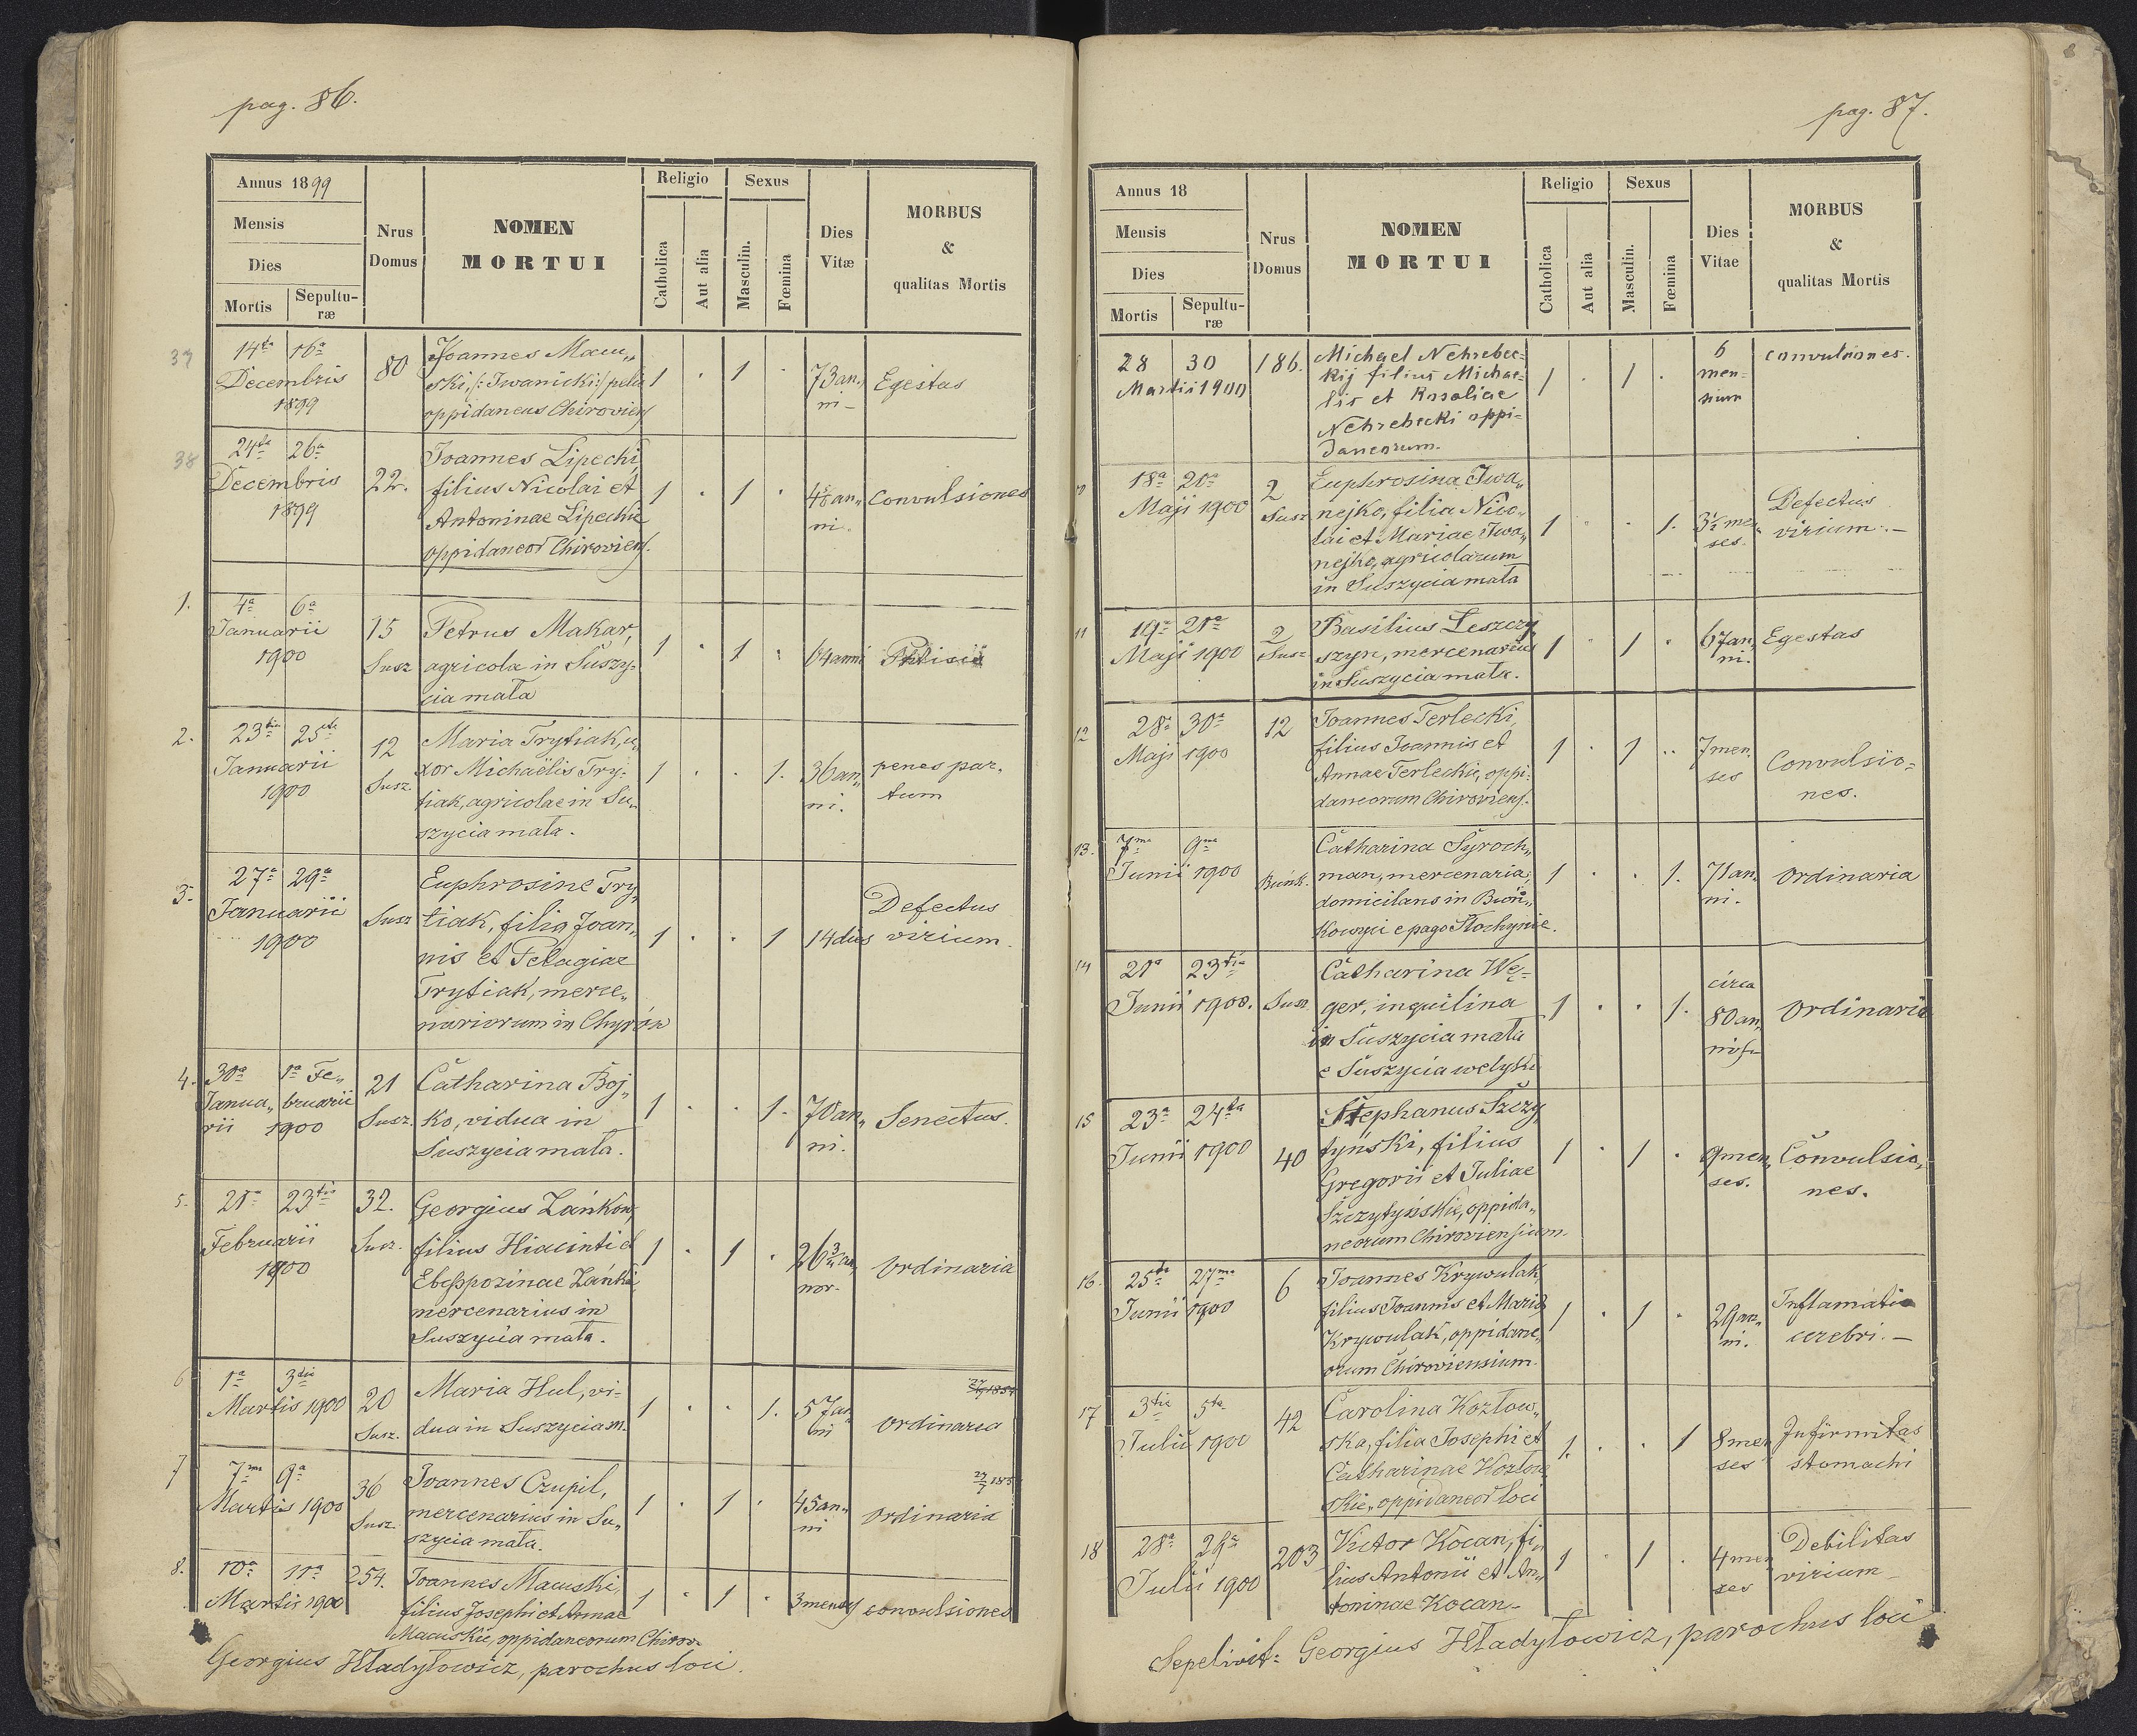 pag. 86.
Annus 1899
Mensis
Dies
Mortis
Sepultu-
ræ
Nrus
Domus
NOMEN
MORTUI
Religio
Catholica
Aut alia
Sexus
Masculin.
Fœmina
Dies
Vitæ
MORBUS
&
qualitas Mortis
37
14ta 16a
Decembris
1899
80
Joannes Macu„
ski, (:Iwanicki:)
oppidaneus Chiroviens
1 . 1 .
73 an„
ni
Egestas
38
24ta 26a
Decembris
1899
22.
Joannes Lipecki,
filius Nicolai et
Antoninae Lipeckie
oppidaneor Chiroviens.
1 . 1 .
an„
ni
convulsiones
1.
4a 6a
Januarii
1900
15
Susz
Petrus Makar,
agricola in Suszy-
cia mała
1 . 1 .
64 anni
Phtisis
2.
23tia 25ta
Januarii
1900
12
Susz.
Maria Trytiak, u„
xor Michaëlis Try-
tiak, agricolae in Su„
szycia mała.
1 . . 1.
36 an„
ni.
penes par„
tum
3.
27a 29a
Januarii
1900
Susz
Euphrosine Try„
tiak, filia Joan„
nis et Pelagiae
Trytiak, merce„
nariorum in Chyrów
1 . . 1
14 dies
Defectus
virium.
4.
30a 1a Fe„
Janua„ bruarii
rii 1900
21
Susz.
Catharina Boj„
ko, vidua in
Suszycia mała.
1 . . 1.
70 an„
ni.
Senectus.
5.
21a 23tia
Februarii
1900
32.
Susz.
Georgius Łańkow,
filius Hiacinti et
Łańki,
mercenarius in
Suszycia mała.
1 . 1 .
26 3/4 an„
nor.
Ordinaria
6
1a 3tia
Martis 1900
20
Susz.
Maria Hul, vi-
dua in Suszycia m.
1 . . 1.
57 an
ni
Ordinaria
7
7ma 9a
Martis 1900
36
Susz.
Joannes Czupil,
mercenarius in Su„
szycia mała.
1 . 1 .
45 an„
ni
Ordinaria
8.
10a 11a
Martis 1900
254.
Joannes Macuski,
filius Josephi et Annae
Macuskie, oppidaneorum Chirov.
1 . 1 .
3 menses
convulsiones
Georgius Hładyłowicz, parochus loci.
pag. 87.
Annus 18
Mensis
Dies
Mortis
Sepultu-
ræ
Nrus
Domus
NOMEN
MORTUI
Religio
Catholica
Aut alia
Sexus
Masculin.
Fœmina
Dies
Vitae
MORBUS
&
qualitas Mortis
28 30
Martii 1900
186.
Michael Nehrebec=
kij filius Michae=
lis et Rosaliae
Nehrebecki oppi=
daneorum.
1 . 1 .
6
men=
sium
convulsiones.
18a 20a
Maji 1900
2
Susz
Euphrosina Iwa„
nejko, filia Nico„
lai et Mariae Iwa„
nejko, agricolarum
in Suszycia mała
1 . . 1.
3½ men„
ses.
Defectus
virium. —
11
19a 21a
Maji 1900
2
Susz
Basilius Leszczy„
szyn, mercenarius
in Suszycia mała.
1 . 1 .
67 an„
ni.
Egestas
12
28a 30a
Maji 1900
12
Joannes Terlecki,
filius Joannis et
Annae Terleckie, oppi-
daneorum Chiroviens.
1 . 1 ..
7 men„
ses
Convulsio=
nes.
13.
7ma 9na
Junii 1900
Bunk.
Catharina Syroch„
man, mercenaria,
domicilans in Buń„
kowyci e pago Stochynie.
1 . . 1.
71 an„
ni.
Ordinaria
14
21a 23tia
Junii 1900.
Susz.
Catharina We-
ger, inquilina
in Suszycia mała
e Suszycia welyka
1 . . 1.
circa
80 an„
nis
Ordinaria
15
23a 24ta
Junii 1900
40
Stephanus Szczy„
tyński, filius
Gregorii et Juliae
Szczytyńskie, oppida„
neorum Chiroviensium.
1 . 1 .
9 men„
ses.
Convulsio„
nes.
16.
25ta 27ma
Junii 1900
6
Joannes Krywulak,
filius Joannis et Mariae
Krywulak, oppidane„
orum Chiroviensium.
1 . 1 .
29 an„
ni.
Inflamatio
cerebri. —
17
3tia 5ta
Julii 1900
42
Carolina Kozłow„
ska, filia Josephi et
Catharinae Kozłow„
skie, oppidaneor loci
1. . . 1
8 men
ses
Infirmitas
stomachi
18
28a 29a
Julii 1900
203
Victor Kocan, fi„
lius Antonii et An„
toninae Kocan
1 . 1 .
4 men
ses
Debilitas
virium
Sepelivit: Georgius Hładyłowicz, parochus loci